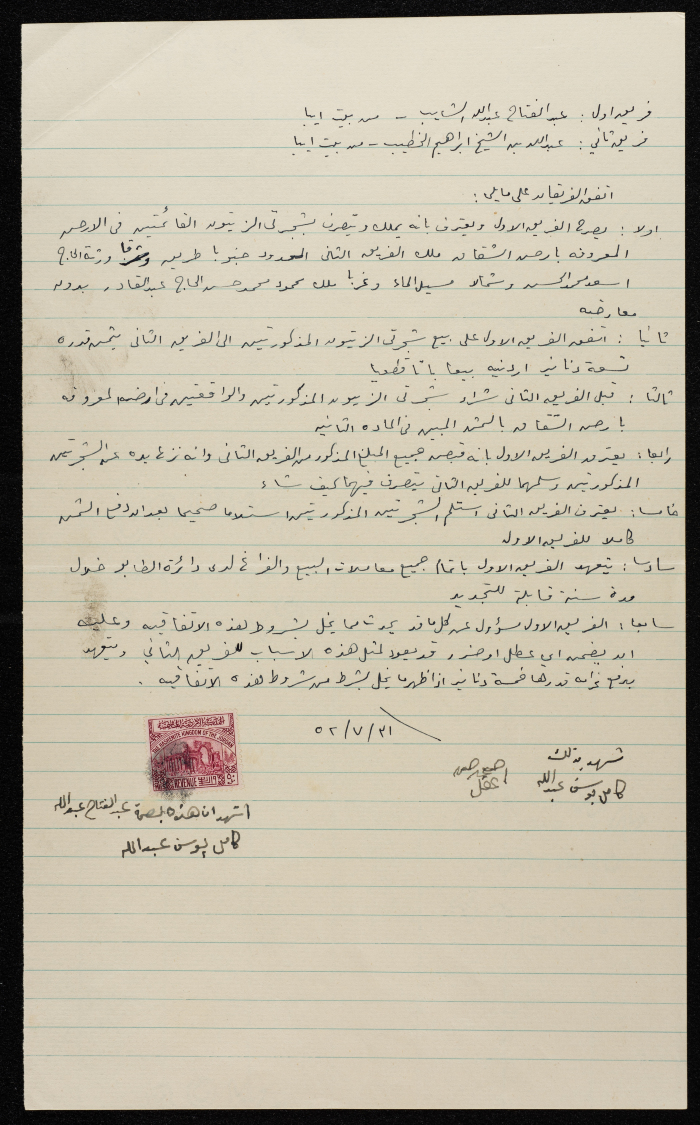 فريق اول : عبد الفتاح عبدالله الشايب - من بيت ايبا
فريق ثاني : عبدالله بن الشيخ ابراهيم الخطيب - من بيت ايبا
اتفق الفريقان على مايلي :
اولا : يصرح الفريق الاول ويعترف بانه يملك ويتصرف بشجرتي الزيتون القائمتين في الارض
المعروفه بارض الشقان ملك الفريق الثاني المحدود جنوبا طريق وشرقا ورثة الحاج
اسعد محمد الحسن وشمالا مسيل الماء وغربا ملك محمود محمد حسن الحاج عبد القادر بدون
معارضه
ثانيا : اتفق الفريق الاول على بيع شجرتي الزيتون المذكورتين الى الفريق الثاني بثمن قدره
تسعة دنانير اردنيه بيعا باتا قطعيا
ثالثا : قبل الفريق الثاني شراء شجرتي الزيتون المذكورتين والواقعتين في ارضه المعروفه
بارض الشقان بالثمن المبين في الماده الثانيه
رابعا : يعترف الفريق الاول بانه قبض جميع المبلغ المذكور من الفريق الثاني وانه نزع يده عن الشجرتين
المذكورتين وسلمهما للفريق الثاني يتصرف فيهما كيف شاء
خامسا : يعترف الفريق الثاني استلم الشجرتين المذكورتين استلاما صحيحا بعد ان دفع الثمن
كاملا للفريق الاول
سادسا : يتعهد الفريق الاول باتمام جميع معاملات البيع والفراغ لدى دائرة الطابو خلال
مدة سنة قابلة للتجديد
سابعا : الفريق الاول مسؤول عن كل ما قد يحدث مما يخل بشروط هذه الاتفاقيه وعليه
ان يضمن اي عطل او ضرر قد يعود لمثل هذه الاسباب للفريق الثاني ويتعهد
بدفع غرامه قدرها خمسة دنانير اذا ظهر ما يخل بشرط من شروط هذه الاتفاقيه .
٥٢/٧/٣١
THE HASHEMITE KINGDOM OF THE JORDAN
REVENUE
شهد بذلك
كامل يوسف عبدالله
عقل
اشهد ان هذه بصمة عبد الفتاح عبدالله
كامل يوسف عبدالله